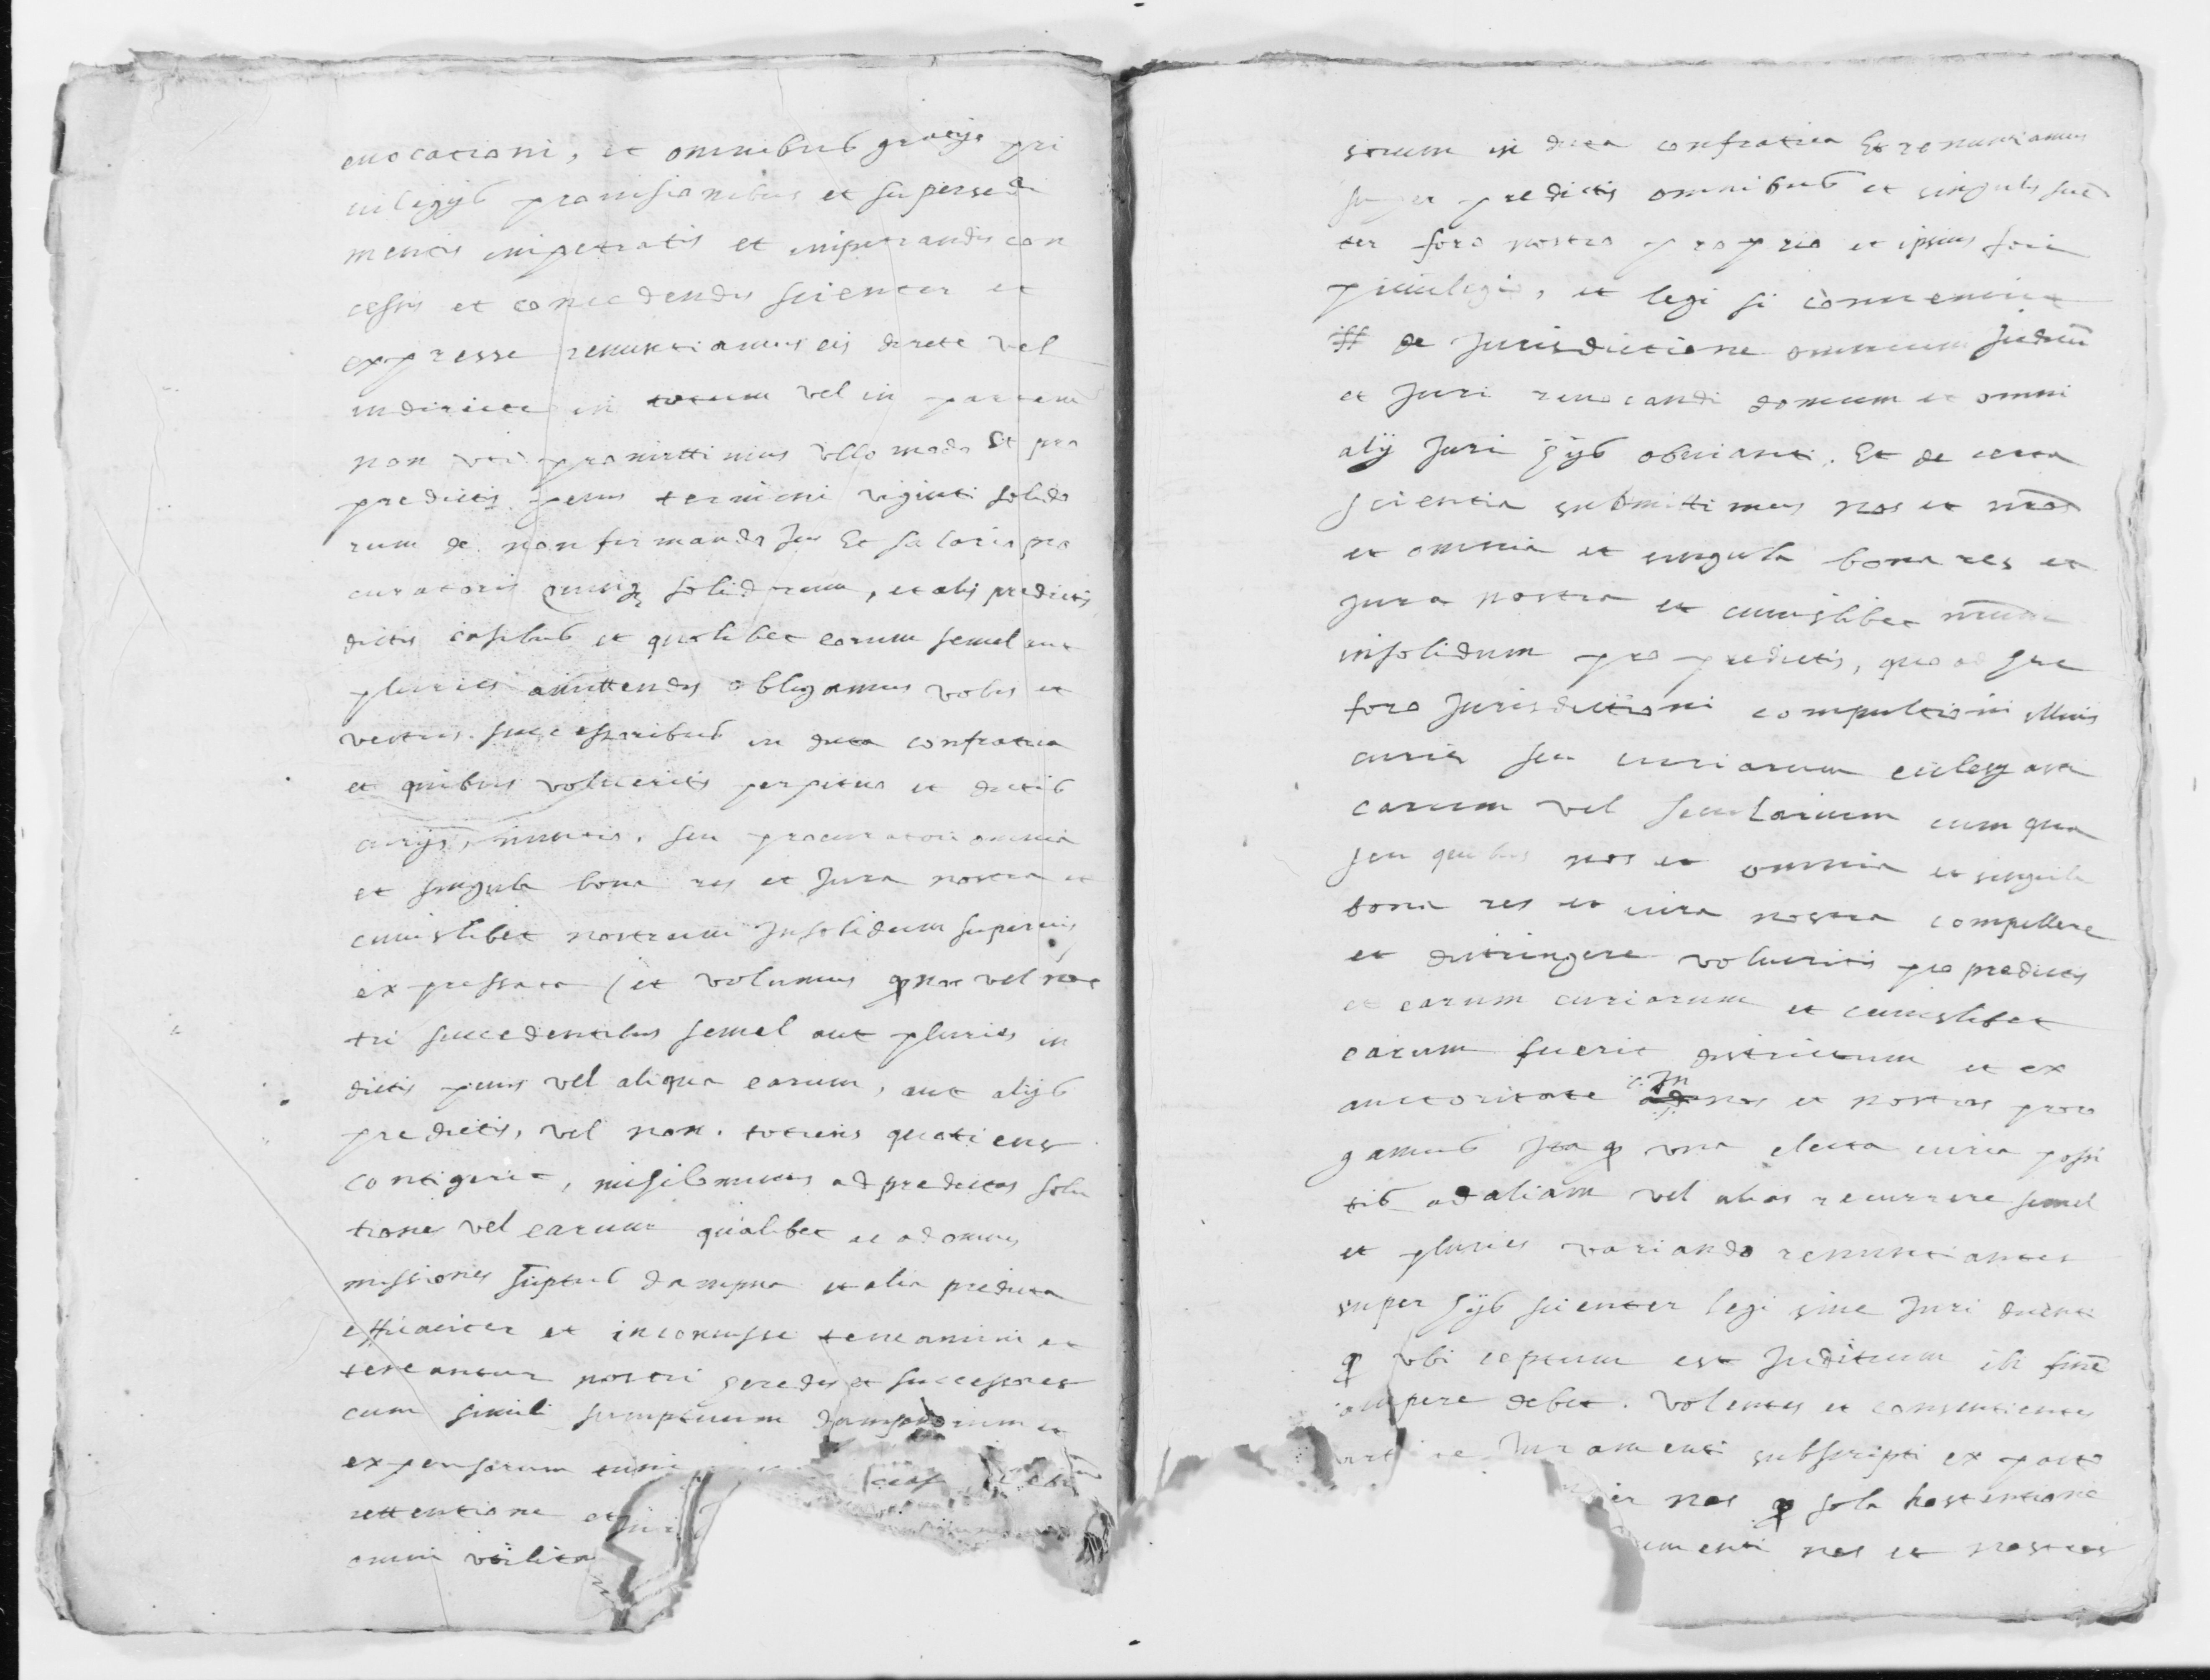 euocationi, et omnibus gratijs pri
uilegijs prouisionibus et supersedi
mentis impetratis et impetrandis con
cessis et concedendis scienter et
expresse renuntiamus eis directe vel
indirecte in totum vel in partem
non vti promittimus vllo modo Et pro
predictis penis termini viginti solido
rum de non firmando Jus Et salario pro
curatoris quinq solidorum, et alis predictis
dictis casibus et quolibet eorum semel aut
pluries amittendis obligamus vobis et
vestris successoribus in dicta confratria
et quibus volueritis perpetuo et dictis
curijs, seu procuratori omnia
et singula bona res et Jura nostra et
cuiuslibet nostrum Insolidum superius
expressata (et volumus q nos vel nos
tri succedentibus semel aut pluries in
dictis penis vel aliqua earum, aut alijs
predictis, vel non. totiens quotiens
contigerit, nihilominus ad predictas solu
tiones vel earum qualibet ac ad omnes
missiones suptus dampna et alia predicta
efficaciter et inconcusse teneamini et
teneantur nostri heredes et successores
cum simili sumptuum dampnorum et
expensarum
rettentione et
omni vtilita
sorum in dicta confratria Et renuntiamus
super predictis omnibus et singulis scie
ter foro nostro proprio et ipsius fori
priuilegio, et legi si conuenerit
ff de Jurisdictione omnium Judicu
et Juri reuocandi domum et omni
alij Juri hijs obuianti. Et de certa
scientia submittimus nos et nros
et omnia et singula bona res et
Jura nostra et cuiuslibet nrum
insolidum pro predictis, quoad hec
foro Jurisdictioni compultioni illius
curie seu curiarum eclesyasti
carum vel secularium cum qua
seu quibus nos et omnia et singula
bona res et iura nostra compellere
et distringere volueritis pro predictis
et earum curiarum et cuiuslibet
earum fuerit districtum et ex
auctoritate in nos et nostros proro
gamus Ita q vna electa curia possi
tis ad aliam vel alias recurrere semel
et pluries variando renuntiantes
super hijs scienter legi siue Juri dicenti
q vbi ceptum est Juditium ibi fine
accipere debet. Volentes et consentientes
Juramenti subscripti ex parte
nos q sola hostentione
umenti nos et nostros